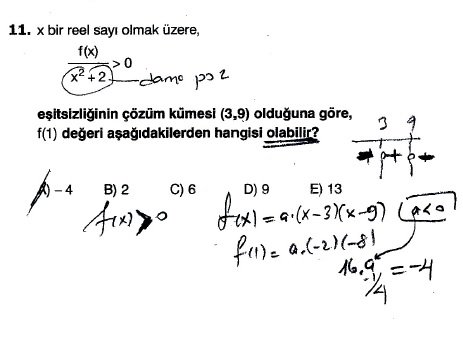 11. x bir reel sayı olmak üzere,
f(x)
x² + 2 > 0
eşitsizliğinin çözüm kümesi (3,9) olduğuna göre,
f(1) değeri aşağıdakilerden hangisi olabilir?
3 9
- + -
A) – 4 B) 2 C) 6 D) 9 E) 13
f(x) > 0
f(x) = a.(x-3)(x-9) a<0
f(1) = a.(-2)(-8)
16.a = -4